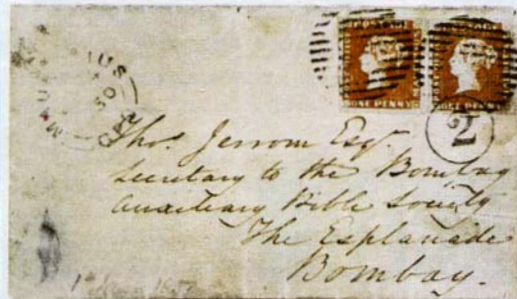 ONE PENNY
ONE PENNY
2
Thos. Jerrom Esqr.
Secretary to the Bombay
Auxiliary Bible Society
The Esplanade
Bombay.